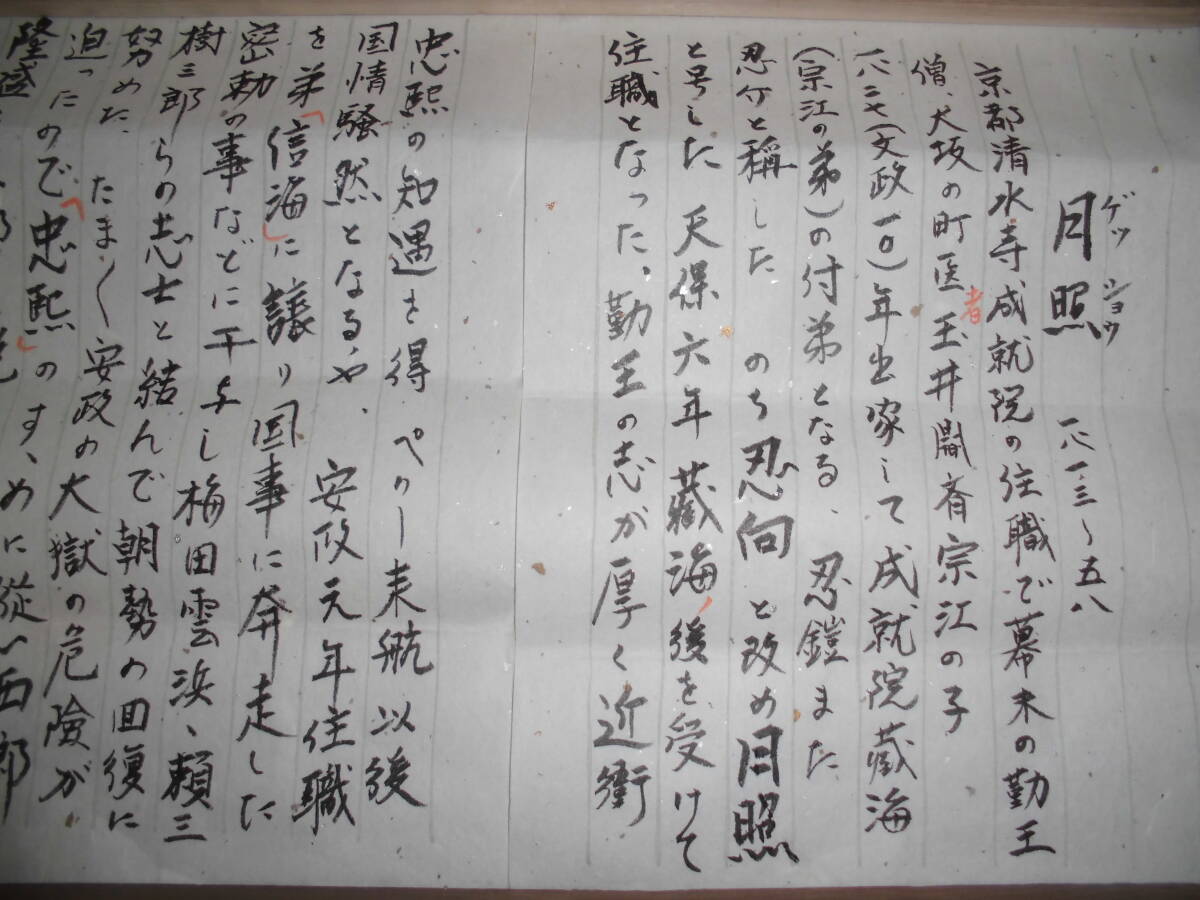 月照 ゲッショウ 一八一三〜五八
京都清水寺成就院の住職で幕末の勤王
僧、大坂の町医者玉井闇斉宗江の子
一八二七(文政一〇)年出家して成就院蔵海
(宗江の弟)の付弟となる、忍鎧また
忍介と称した のち忍向と改め月照
と号した 天保六年蔵海、後を受けて
住職となった、勤王の志が厚く近衝
忠熙の知遇を得 ペリー来航以後
国情騒然となるや、安政元年住職
を弟「信海」に譲り国事に奔走した
密勅の事などに干与し梅田雲浜、頼三
樹三郎らの志士と結んで朝勢の回復に
努めた たま〱安政の大獄の危険が
迫ったので「忠熙」のすゝめに従い西郷
隆盛